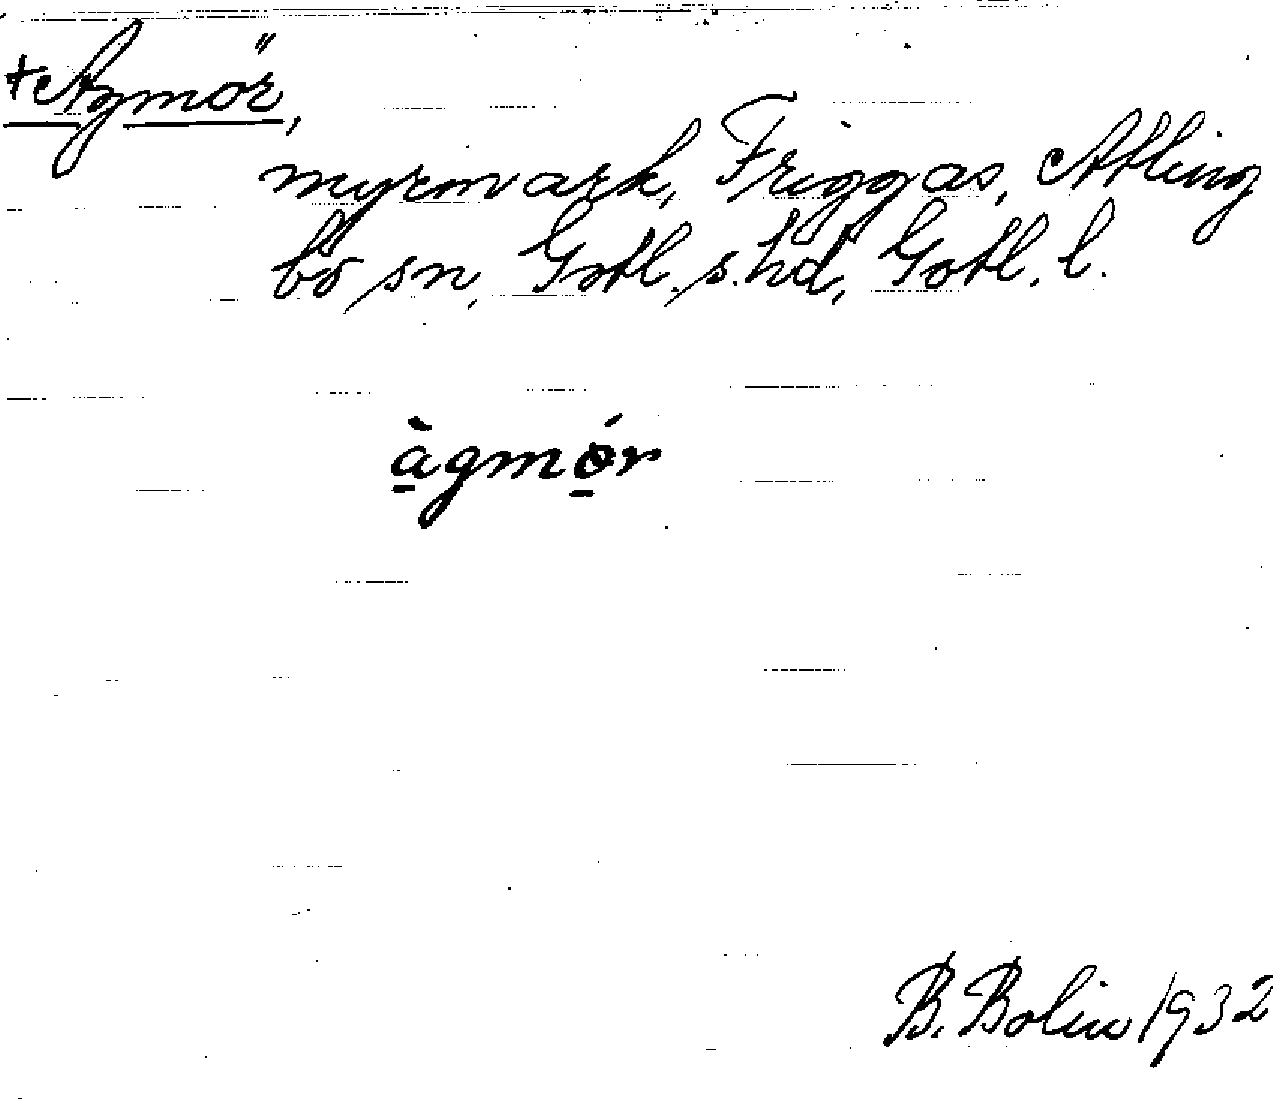 +Agmör,
myrmark, Friggas, Atling
bo sn, Gotl. s. hd, Gotl. l.
àgmǫ́r
B. Bolin 1932